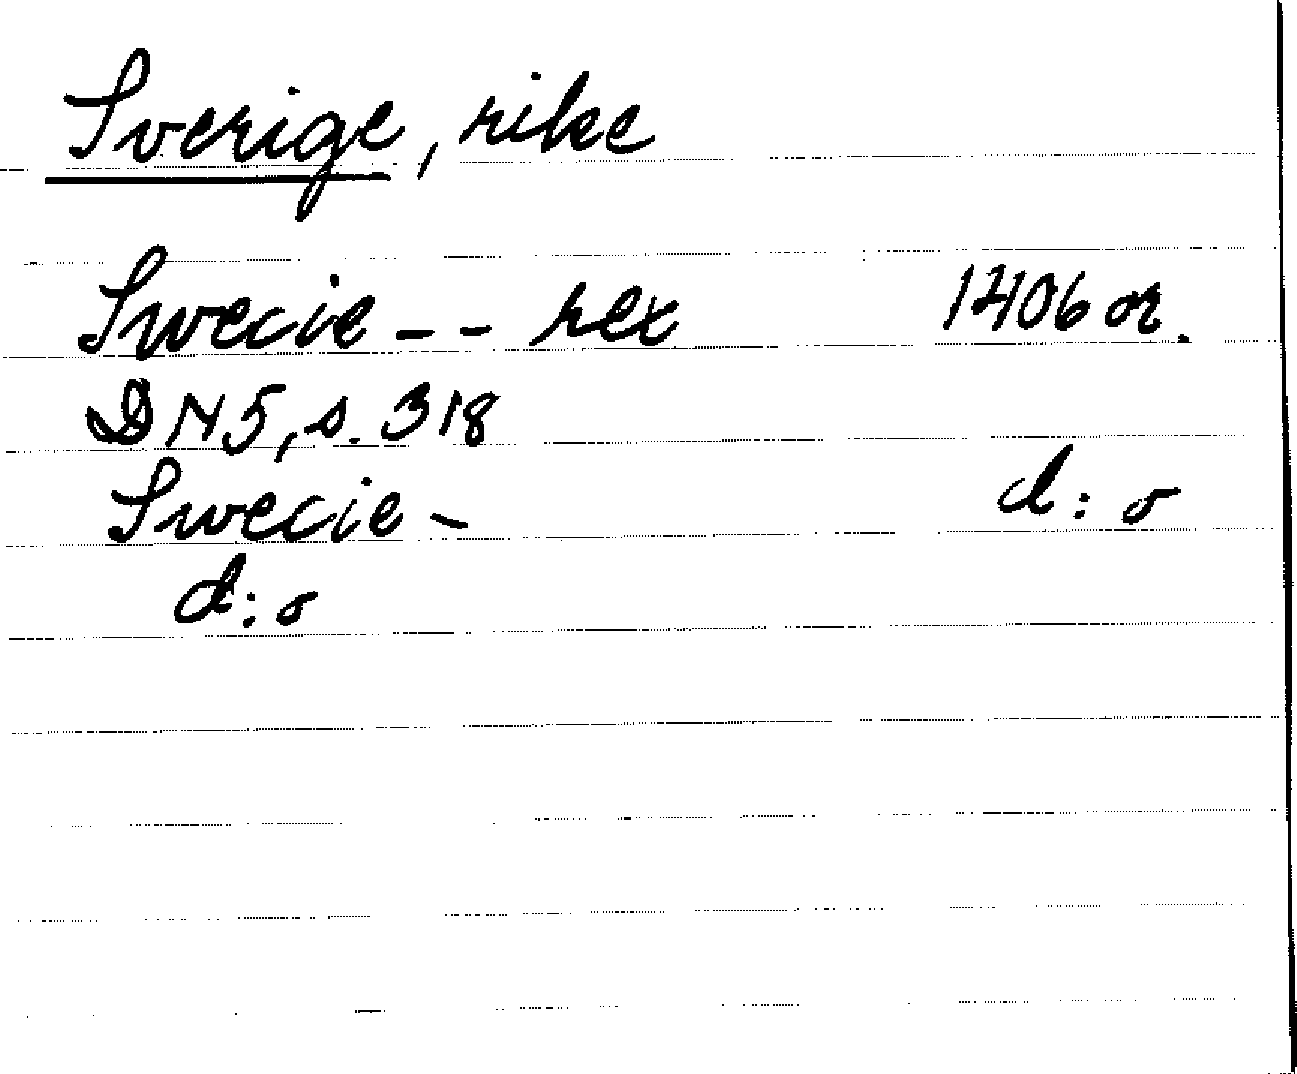 Sverige, rike
Swecie -- rex 1406 or.
DN5, s. 318
Swecie - d:o
d:o